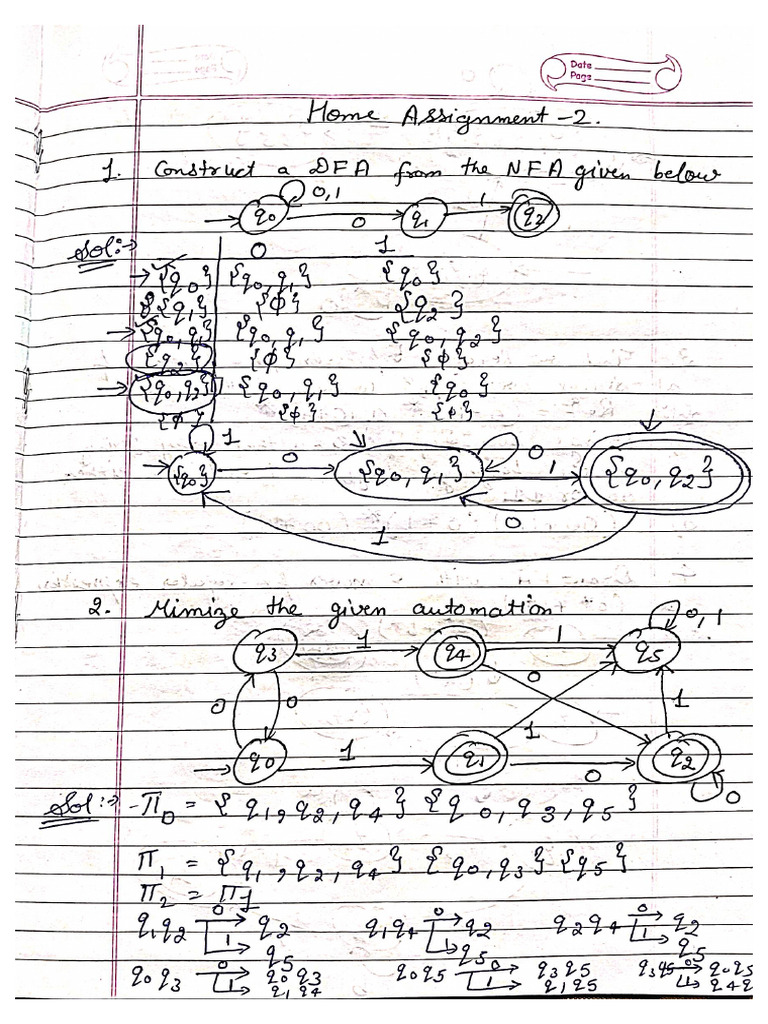 Date
Page
Home Assignment -2.
1. Construct a DFA from the NFA given below
0,1
q0 0 q1 1 q2
Sol:-
0 1
{q0} {q0,q1} {q0}
{q1} {ϕ} {q2}
{q0,q1} {q0,q1} {q0,q2}
{q2} {ϕ} {ϕ}
{q0,q2} {q0,q1} {q0}
{ϕ} {ϕ} {ϕ}
1 0
{q0} 0 {q0,q1} 1 {q0,q2}
0
1
2. Mimize the given automation
0,1
q3 1 q4 1 q5
0 0 0 1 1
q0 1 q1 0 q2 0
Sol:- Π0 = {q1,q2,q4} {q0,q3,q5}
Π1 = {q1,q2,q4} {q0,q3} {q5}
Π2 = Π1
q1q2 0→ q2 q1q4 0→ q2 q2q4 0→ q2
1→ q5 1→ q5 1→ q5
q0q3 0→ q0q3 q0q5 0→ q3q5 q3q5 0→ q0q5
1→ q1q4 1→ q1q5 1→ q4q